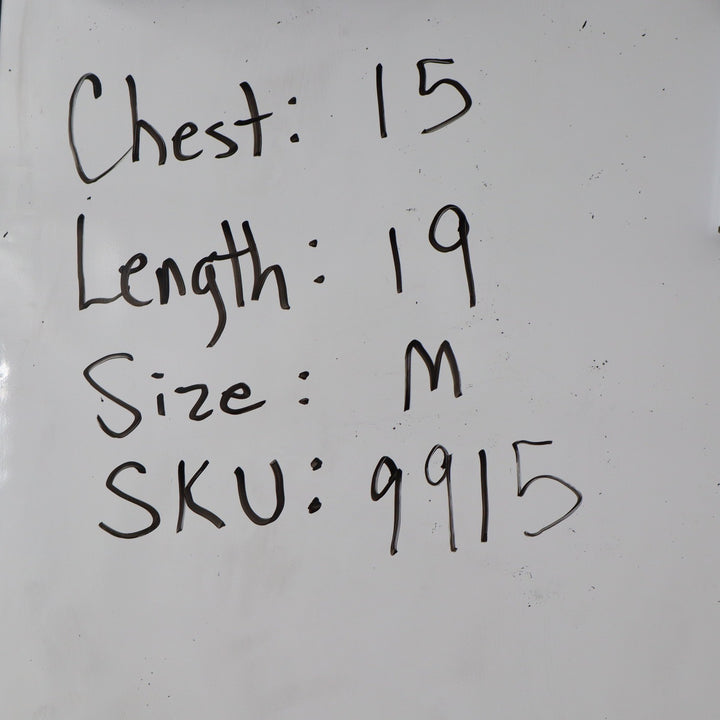 Chest: 15
Length: 19
Size: M
SKU: 9915